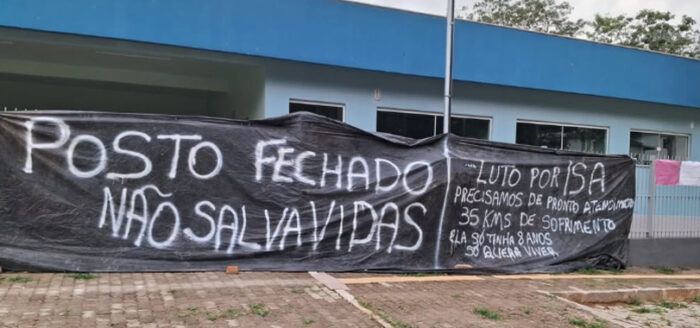 POSTO FECHADO
NÃO SALVA VIDAS
LUTO POR ISA
PRECISAMOS DE PRONTO ATENDIMENTO
35 KMS DE SOFRIMENTO
ELA SÓ TINHA 8 ANOS
SÓ QUERIA VIVER